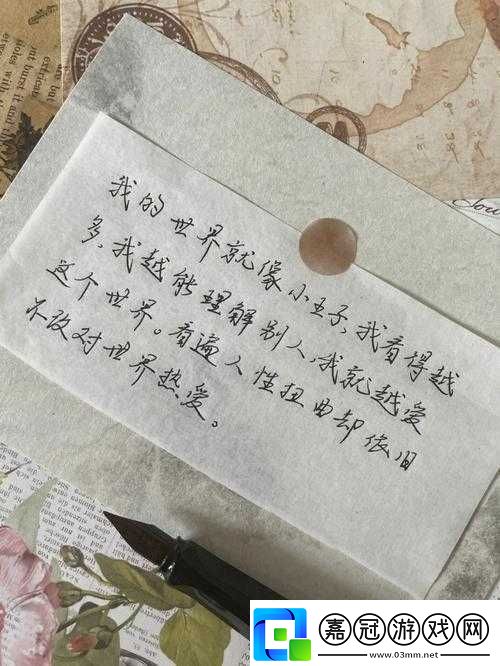 我的世界就像小王子，我看得越
多，我越能理解别人，我就越爱
这个世界。看遍人性扭曲却依旧
不改对世界热爱。
嘉冠游戏网
www.03mm.net